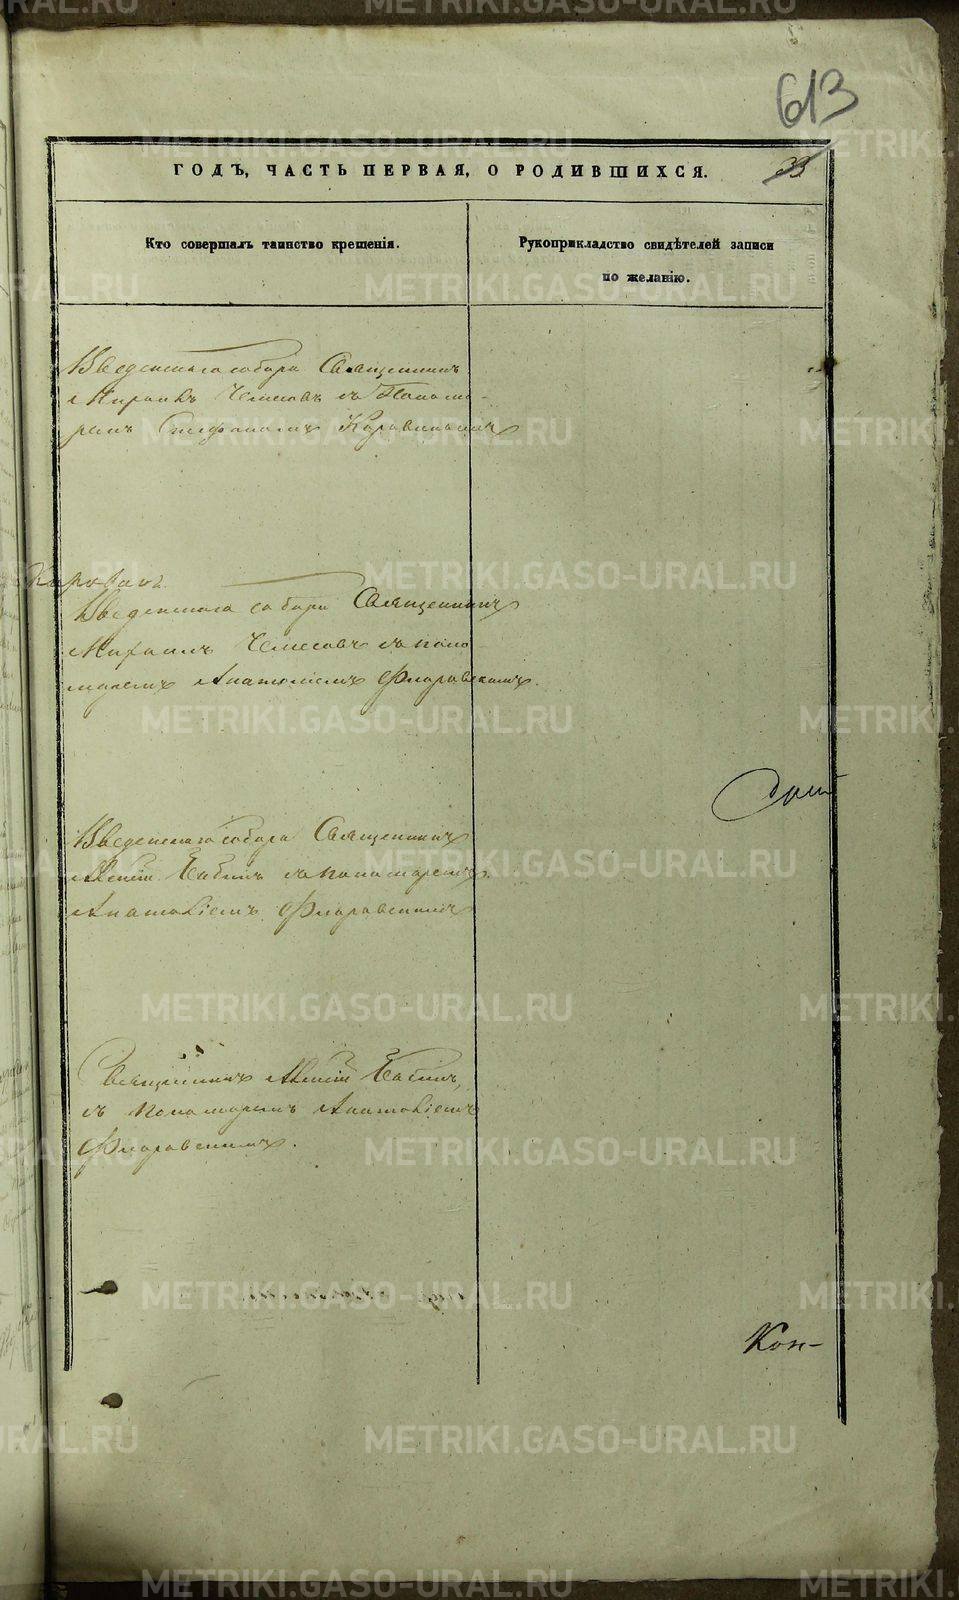 613
33
ГОДЪ, ЧАСТЬ ПЕРВАЯ, О РОДИВШИХСЯ.
Кто совершалъ таинство крещенія.
Рукоприкладство свидѣтелей записи
по желанію.
Введенскаго собора Священникъ
Михаилъ Чемесовъ съ Понома-
ремъ Стефаномъ
Введенскаго собора Священникъ
Михаилъ Чемесовъ съ поно
маремъ Анатоліемъ Флоровскимъ.
Введенскаго собора Священникъ
Бабинъ съ пономаремъ
Анатоліемъ Флоровскимъ
Священникъ Бабинъ,
съ пономаремъ Анатоліемъ
Флоровскимъ.
Кон-
METRIKI.GASO-URAL.RU